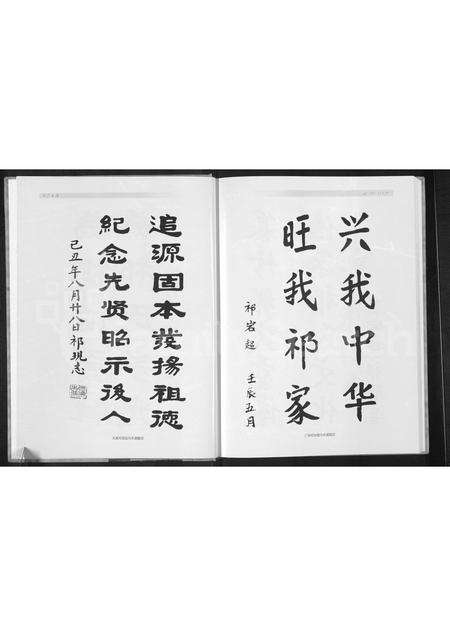 兴我中华
旺我祁家
祁岩超 壬辰五月
追源固本發揚祖德
紀念先贤昭示後人
己丑年八月廿八日祁现志